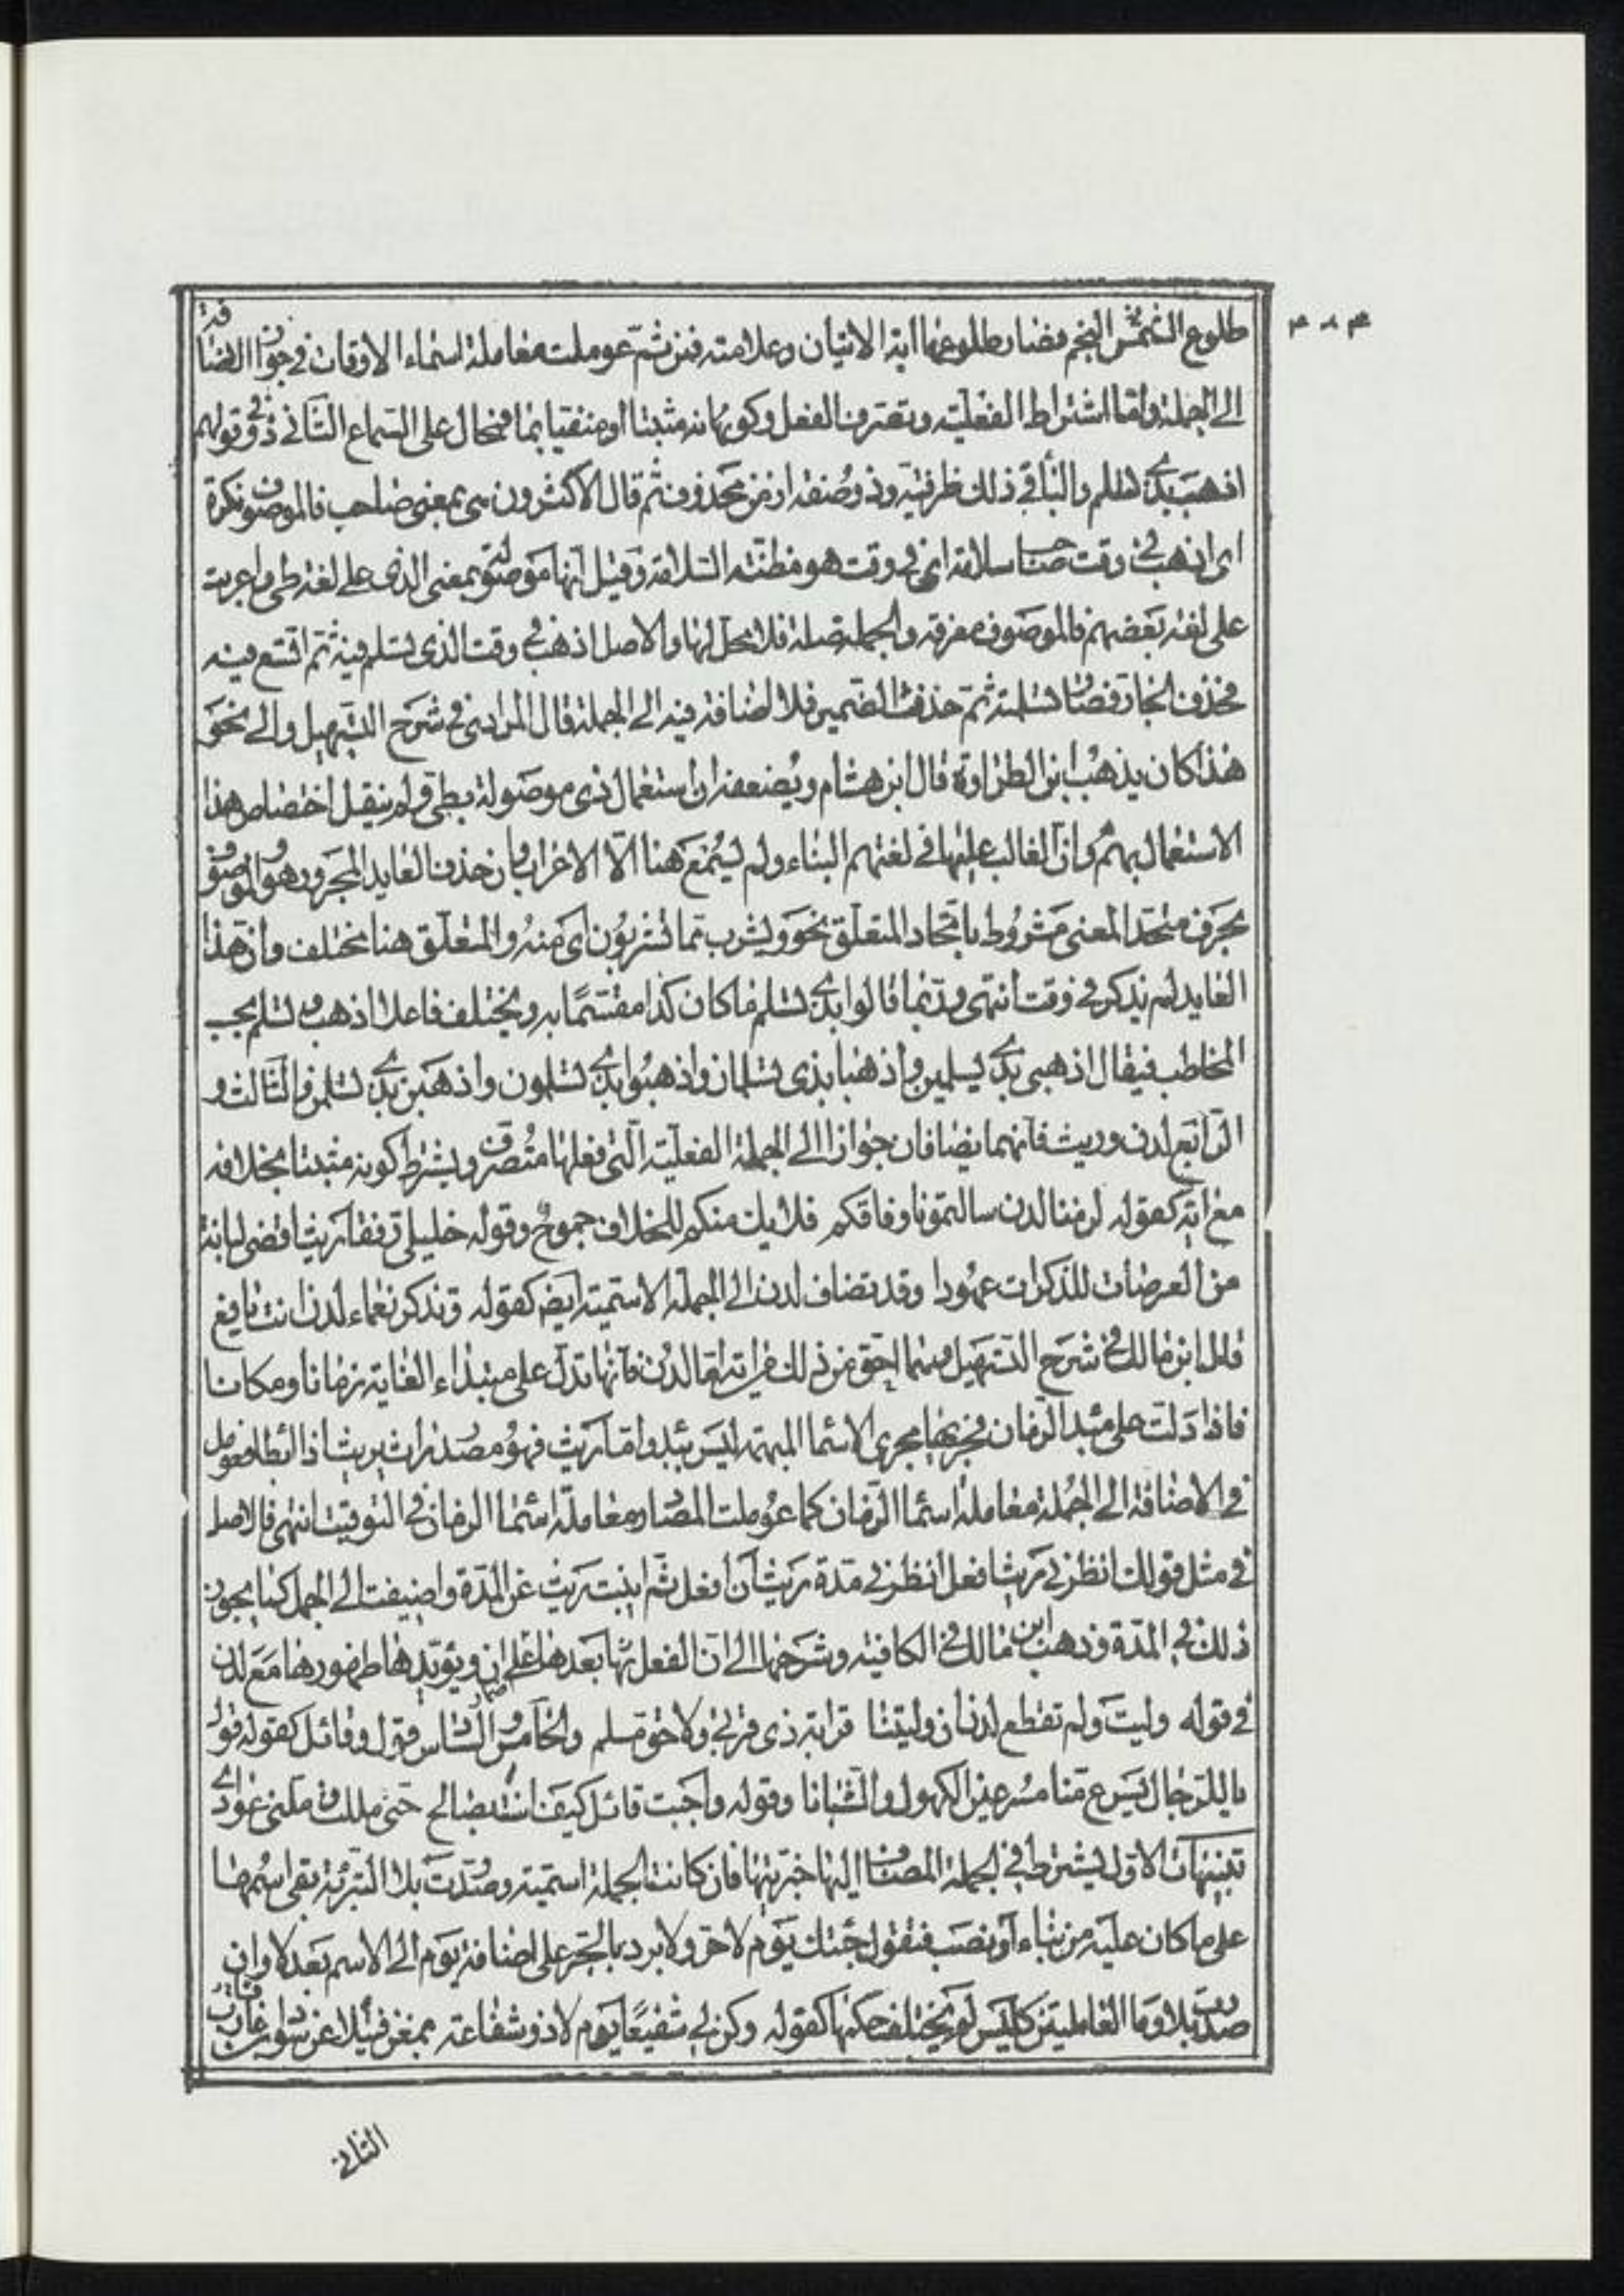 طلوع الشمس النجم فصار طلوعها اية الاتيان وعلامته فمن ثم عوملت معاملة اسماء الاوقات في جواز الاضافة
الى الجملة واما اشتراط الفعلية وتصرف الفعل وكونه مثبتا او منفيا بما فمحال على السماع الثاني ذو في قولهم
اذهب بذي تسلم والباء في ذلك ظرفية وذي صفة لزمن محذوف ثم قال الاكثرون هي بمعنى صاحب فالموصوف نكرة
اي اذهب في وقت صاحب سلامة اي في وقت هو مظنة السلامة وقيل انها موصولة بمعنى الذي على لغة طي واعربت
على لغة بعضهم فالموصوف معرفة والجملة صلة فلا محل لها والاصل اذهب في وقت الذي تسلم فيه ثم اتسع فيه
فحذف الجار فصار تسلمه ثم حذف الضمير فلا اضافة فيه الى الجملة قال المرادي في شرح التسهيل والى نحو
هذا كان يذهب ابن الطراوة قال ابن هشام ويضعفه ان استعمال ذي موصولة بطي ولم ينقل اختصاص هذا
الاستعمال بهم وان الغالب عليها في لغتهم البناء ولم يسمع هنا الا الاعراب وبان حذف العايد المجرور هو والموصوف
بحرف متحد المعنى مشروط باتحاد المتعلق نحو ويشرب مما تشربون اي منه والمتعلق هنا مختلف وان هذا
العايد لم يذكر في وقت انتهى وربما قالوا بذي تسلم ما كان كذا مقتسما به ويختلف فاعلا اذهب وتسلم بحسب
المخاطب فيقال اذهبي بذي تسلمين واذهبا بذي تسلمان واذهبوا بذي تسلمون واذهبن بذي تسلمن والثالث و
الرابع لدن وريث فانهما يضافان جوازا الى الجملة الفعلية التي فعلها متصرف ويشترط كونه مثبتا بخلافه
مع اية كقوله لزمنا لدن سالتمونا وفاقكم فلا يك منكم للخلاف جموح وقوله خليلي رفقا ريث اقضي لبانة
من العرصات للذكرات عهودا وقد تضاف لدن الى الجملة الاسمية ايضا كقوله وتذكر نعماه لدن انت يافع
قال ابن مالك في شرح التسهيل ومما احق من ذلك لدن فانها تدل على مبتداء الغاية زمانا ومكانا
فاذا دلت على مبدا الزمان فجريها مجرى الاسما المبهمة ليس ببدع واما ريث فهو مصدر راث يريث اذا ابطا فعومل
في الاضافة الى الجملة معاملة اسما الزمان كما عوملت المصادر معاملة اسما الزمان في التوقيت انتهى والاصل
في مثل قولك انظرني ريث افعل انظرني مدة ريث ان افعل ثم انيبت ريث عن المدة واضيفت الى الجمل كما يجوز
ذلك في المدة وذهب ابن مالك في الكافية وشرحها الى ان الفعل بعدها على اضمار ان ويؤيدها ظهورها مع لدن
في قوله وليت ولم تقطع لدن ان وليتنا قرابة ذي قربى ولا حق مسلم والخامس والسادس قول وقائل كقوله قول
يا للرجال يسرع منا مسرعين الكهول والشبانا وقوله واجبت قائل كيف انت بصالح حتى مللت وملني عوادي
تنبيهات الاول يشترط في الجملة المضاف اليها خبريتها فان كانت الجملة اسمية وصدرت بلا التبرئة بقي اسمها
على ما كان عليه من بناء او نصب فتقول جئتك يوم لا حر ولا برد بالجر على اضافة يوم الى الاسم بعد لا وان
صدرت بلا وما العاملتين كليس لم يختلف حكمها كقوله وكن لي شفيعا يوم لا ذو شفاعة بمغن فتيلا عن سواد بن قارب
الثاني